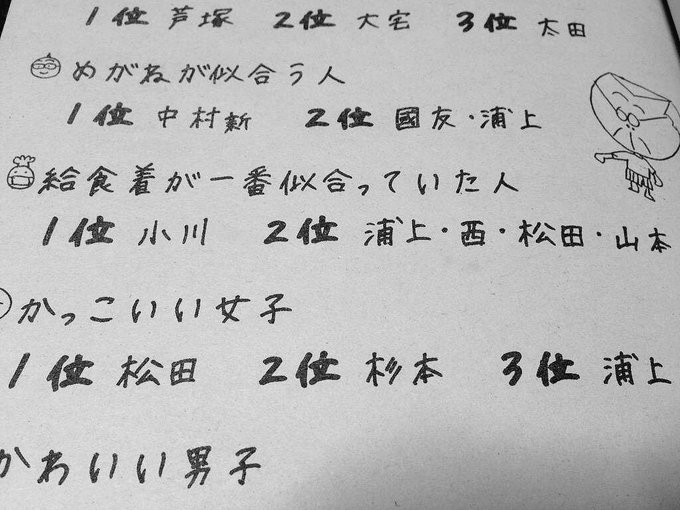 1位 芦塚 2位 大宅 3位 太田
めがねが似合う人
1位 中村新 2位 國友・浦上
給食着が一番似合っていた人
1位 小川 2位 浦上・西・松田・山本
かっこいい女子
1位 松田 2位 杉本 3位 浦上
かわいい男子